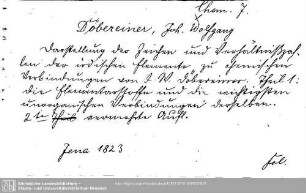 Chem. 7.
Döbereiner, Joh. Wolfgang
Darstellung der Zeichen und Verhältnißzah-
len der irdischen Elemente zu chemischen
Verbindungen von J. W. Döbereiner. Theil 1:
die Elementarstoffe und die wichtigsten
unorganischen Verbindungen derselben.
2te vermehrte Aufl.
Jena 1823
Fol.